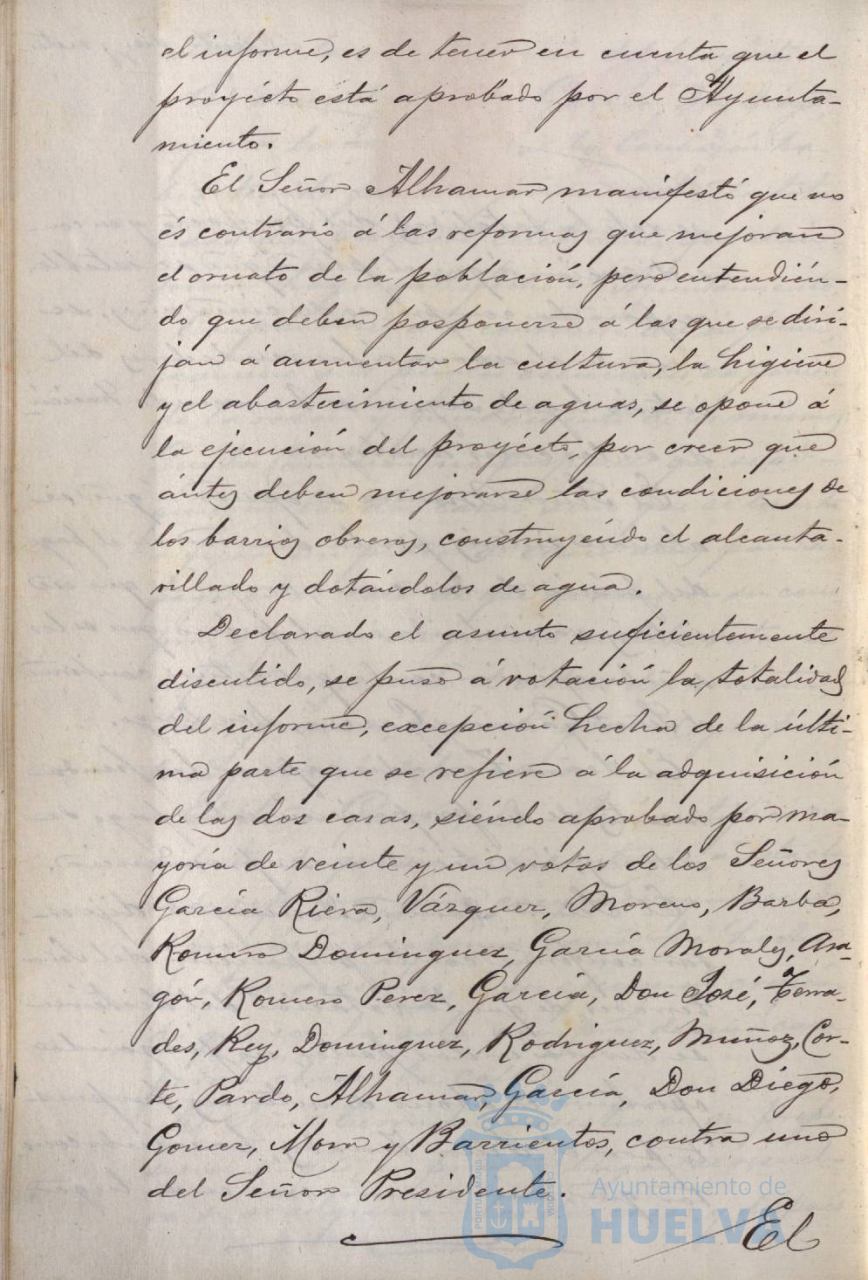 el informe, es de tener en cuenta que el
proyécto está aprobado por el Ayunta-
miento.
El Señor Alhamar manifestó que no
és contrario á las reformas que mejoran
el ornato de la población, pero entendién-
do que deben posponerse á las que se diri-
jan á aumentar la cultura, la higiene
y el abastecimiento de aguas, se opone á
la ejecución del proyécto, por creer que
ántes deben mejorarse las condiciones de
los barrios obreros, construyéndo el alcanta-
rillado y dotándolos de agua.
Declarado el asunto suficientemente
discutido, se puso á votación la totalidad
del informe, excepción hecha de la últi-
ma parte que se refiere á la adquisición
de las dos casas, siéndo aprobado por ma-
yoría de veinte y un votos de los Señores
García Riera, Vázquez, Moreno, Barba,
Romero Dominguez, García Morales, Ara-
gón, Romero Perez, García, Don José, Terra-
des, Rey, Dominguez, Rodriguez, Muñoz, Cor-
te, Pardo, Alhamar, García, Don Diego,
Gomez, Mora y Barrientos, contra uno
del Señor Presidente.
El
Ayuntamiento de
HUELVA